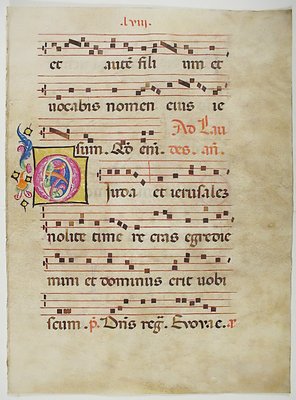 .lviij.
et autē fili um et
uocabis nomen eius ie
sum. Qd eni. Ad Lau
des. an.
Iuda et ierusalez
nolite time re cras egredie
mini et dominus erit uobi
scum. p. Dns reg. Evovae.